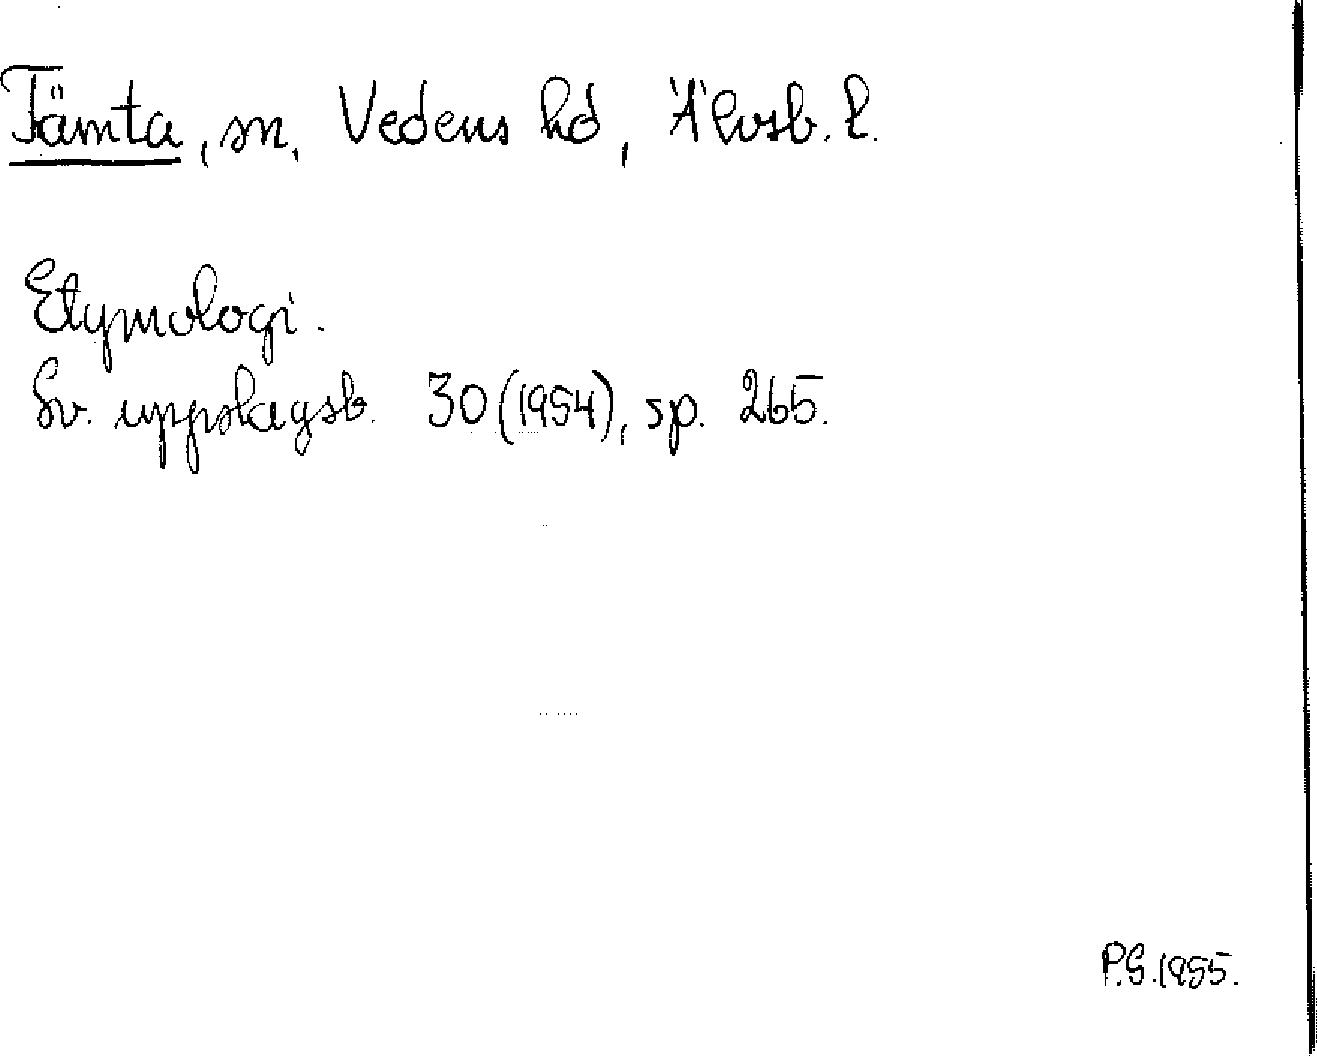 Tämta, sn, Vedens hd, Älvsb. l.
Etymologi.
Sv. uppslagsb. 30 (1954), sp. 265.
P.G. 1955.